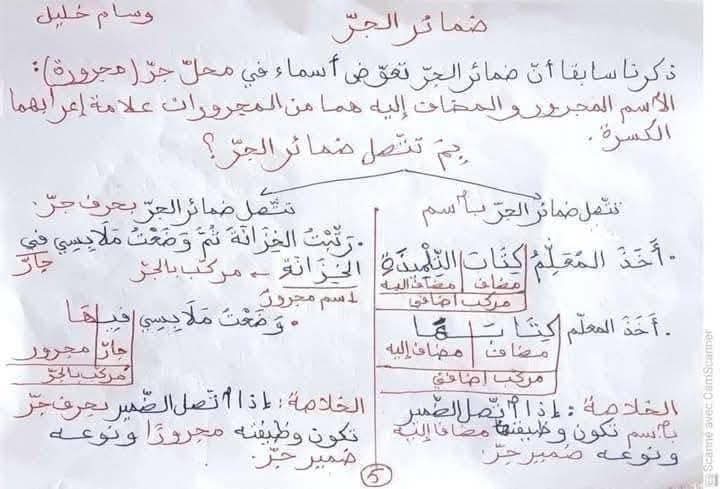 وسام خليل
ضمائر الجرّ
ذكرنا سابقا أنّ ضمائر الجرّ تعوّض أسماء في محلّ جرّ (مجرورة):
الاسم المجرور والمضاف إليه هما من المجرورات علامة إعرابهما
الكسرة.
بِمَ تتّصل ضمائر الجرّ؟
تتّصل ضمائر الجرّ بٱسم
• أَخَذَ المُعَلِّمُ كِتَابَ التِّلْمِيذَةِ
مضاف مضاف إليه
مركب إضافي
• أَخَذَ المعلّم كِتَابَهَا
مضاف مضاف إليه
مركب إضافي
الخلاصة: إذا ٱتّصل الضّمير
بٱسم تكون وظيفته مضافا إليه
ونوعه ضمير جرّ.
تتّصل ضمائر الجرّ بحرف جرّ.
• رَتَّبْتُ الخِزَانَةَ ثُمَّ وَضَعْتُ مَلَابِسِي في
جارّ
الخِزَانَةِ ← مركّب بالجرّ
اسم مجرور
• وَضَعْتُ مَلَابِسِي فِيهَا
جارّ مجرور
مُركّب بالجرّ
الخلاصة: إذا ٱتّصل الضّمير بحرف جرّ
تكون وظيفته مجرورًا ونوعه
ضمير جرّ.
5
Scanné avec CamScanner